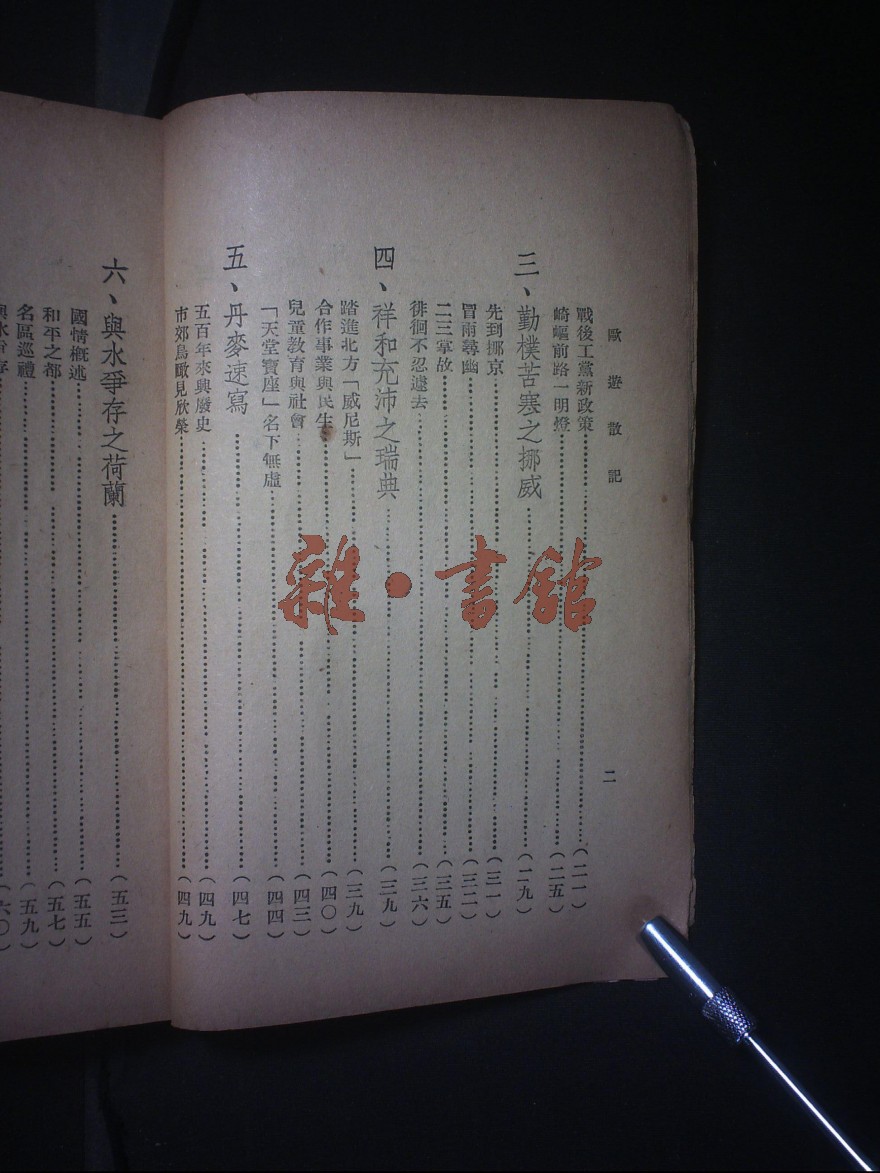 歐遊散記
二
戰後工黨新政策(二一)
崎嶇前路一明燈(二五)
三、勤樸苦寒之挪威(二九)
先到挪京(三一)
冒雨尋幽(三二)
二三掌故(三五)
徘徊不忍遽去(三六)
四、祥和充沛之瑞典(三九)
踏進北方「威尼斯」(三九)
合作事業與民生(四〇)
兒童教育與社會(四三)
「天堂寶座」名下無虛(四四)
五、丹麥速寫(四七)
五百年來興廢史(四九)
市郊鳥瞰見欣榮(四九)
六、與水爭存之荷蘭(五三)
國情概述(五五)
和平之都(五七)
名區巡禮(五九)
與水爭存(六〇)
雜·書館